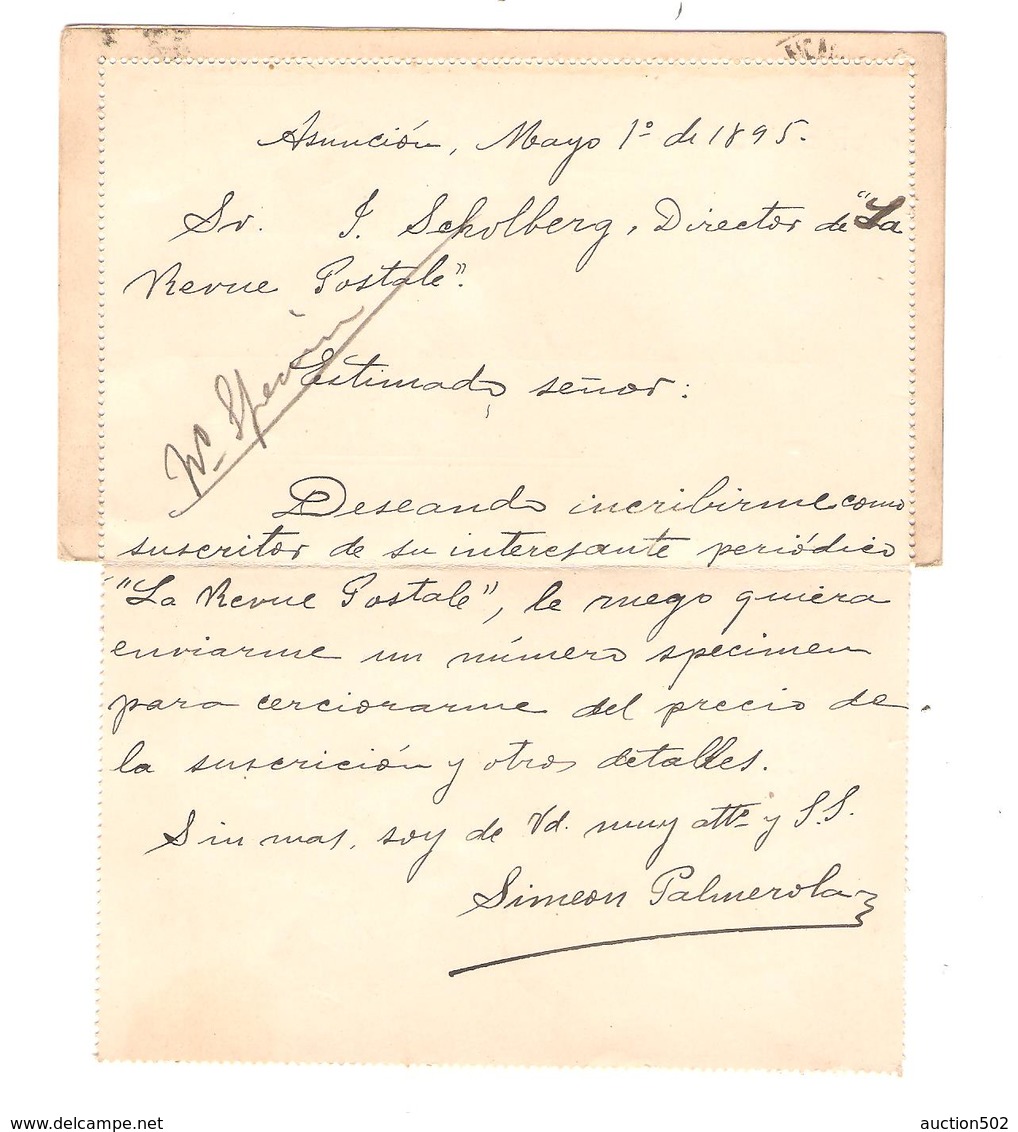 Asunción, Mayo 1º de 1895.
Sr. J. Scholberg, Director de "La
Revue Postale".
Nº Specimen
Estimado señor:
Deseando incribirme como
suscritor de su interesante periódico
"La Revue Postale", le ruego quiera
enviarme un número specimen
para cerciorarme del precio de
la suscrición y otros detalles.
Sin mas, soy de Vd. muy attº y S.S.
Simeon Palmerola
delcampe.net
auction502